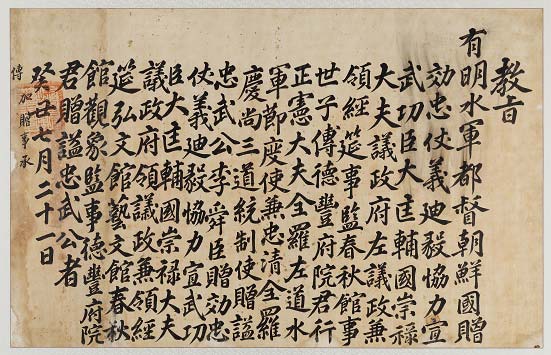 教旨
有明水軍都督朝鮮國贈
効忠仗義迪毅協力宣
武功臣大匡輔國崇禄
大夫議政府左議政兼
領經筵事監春秋館事
世子傅德豐府院君行
正憲大夫全羅左道水
軍節度使兼忠清全羅
慶尚三道統制使贈諡
忠武公李舜臣贈効忠
仗義迪毅協力宣武功
臣大匡輔國崇禄大夫
議政府領議政兼領經
筵弘文館藝文館春秋
館觀象監事德豐府院
君贈諡忠武公者
癸丑七月二十一日
加贈事承
傳